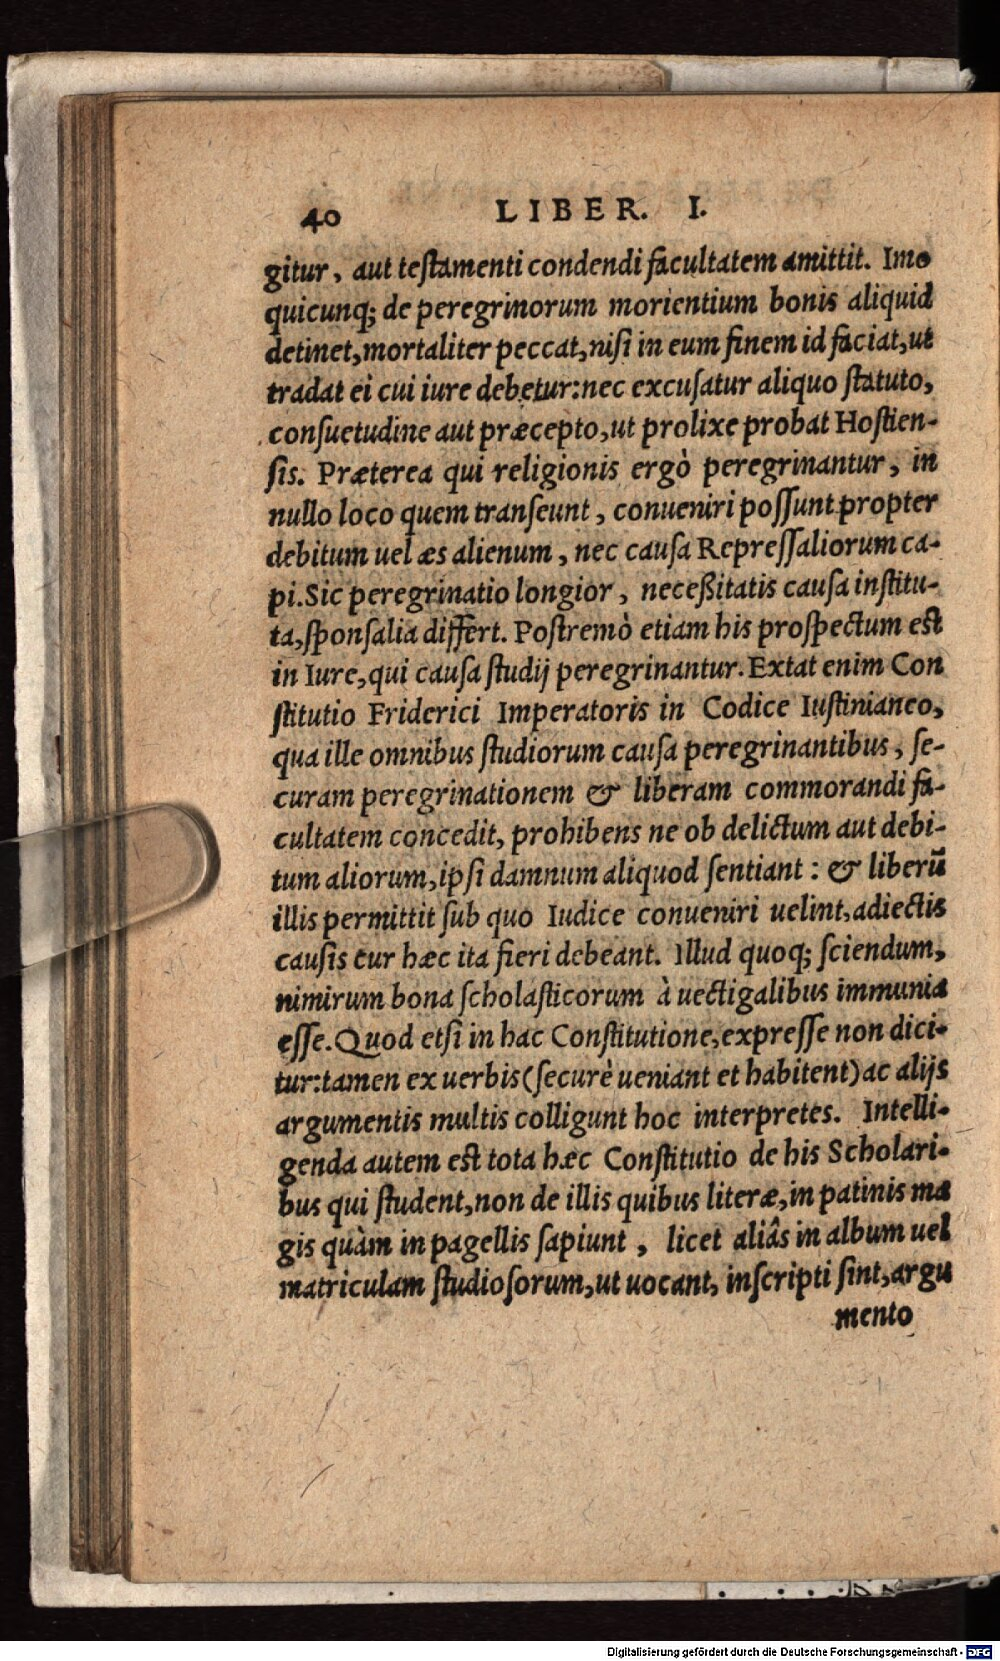 40 LIBER. I.
gitur, aut testamenti condendi facultatem amittit. Imo
quicunq; de peregrinorum morientium bonis aliquid
detinet, mortaliter peccat, nisi in eum finem id faciat, ut
tradat ei cui iure debetur: nec excusatur aliquo statuto,
consuetudine aut præcepto, ut prolixe probat Hostien-
sis. Præterea qui religionis ergò peregrinantur, in
nullo loco quem transeunt, conueniri possunt propter
debitum uel æs alienum, nec causa Repressaliorum ca-
pi. Sic peregrinatio longior, neceßitatis causa institu-
ta, sponsalia differt. Postremò etiam his prospectum est
in Iure, qui causa studij peregrinantur. Extat enim Con
stitutio Friderici Imperatoris in Codice Iustinianeo,
qua ille omnibus studiorum causa peregrinantibus, se-
curam peregrinationem & liberam commorandi fa-
cultatem concedit, prohibens ne ob delictum aut debi-
tum aliorum, ipsi damnum aliquod sentiant: & liberū
illis permittit sub quo Iudice conueniri uelint, adiectis
causis cur hæc ita fieri debeant. Illud quoq; sciendum,
nimirum bona scholasticorum à uectigalibus immunia
esse. Quod etsi in hac Constitutione, expresse non dici-
tur: tamen ex uerbis (securè ueniant et habitent) ac alijs
argumentis multis colligunt hoc interpretes. Intelli-
genda autem est tota hæc Constitutio de his Scholari-
bus qui student, non de illis quibus literæ, in patinis ma
gis quàm in pagellis sapiunt, licet aliâs in album uel
matriculam studiosorum, ut uocant, inscripti sint, argu
mento
Digitalisierung gefördert durch die Deutsche Forschungsgemeinschaft - DFG